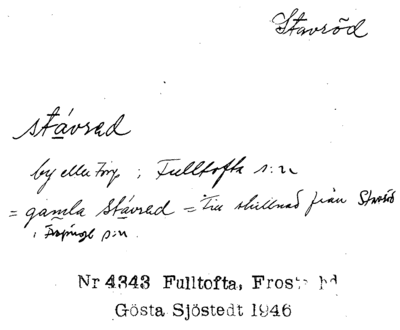 Stavröd
stávrad
by eller torp i Fulltofta s:n
= gamla Stávrad = till skillnad från Stavröd
i s:n.
Nr 4343 Fulltofta, Frosta hd
Gösta Sjöstedt 1946